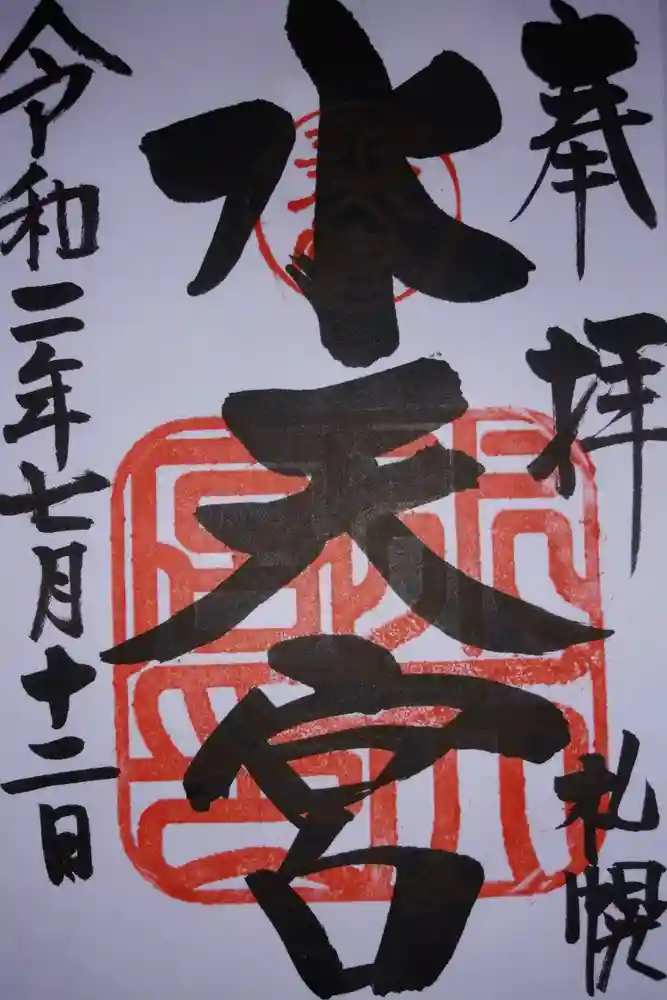 奉拝
札幌
水天宮
令和二年七月十二日